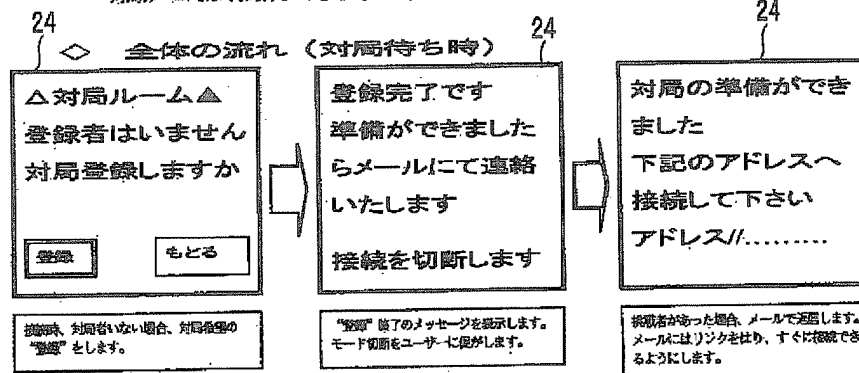 24
24
24
◇ 全体の流れ (対局待ち時)
△対局ルーム▲
登録者はいません
対局登録しますか
登録
もどる
登録完了です
準備ができました
らメールにて連絡
いたします
接続を切断します
対局の準備ができ
ました
下記のアドレスへ
接続して下さい
アドレス//.........
対局者いない場合、対局希望の
"登録" をします。
"登録" 終了のメッセージを表示します。
モード切断をユーザーに促がします。
挑戦者があった場合、メールで返信します。
メールにはリンクをはり、すぐに接続でき
るようにします。